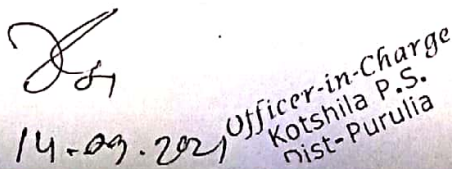 14.09.2021
Officer-in-Charge
Kotshila P.S.
Dist-Purulia